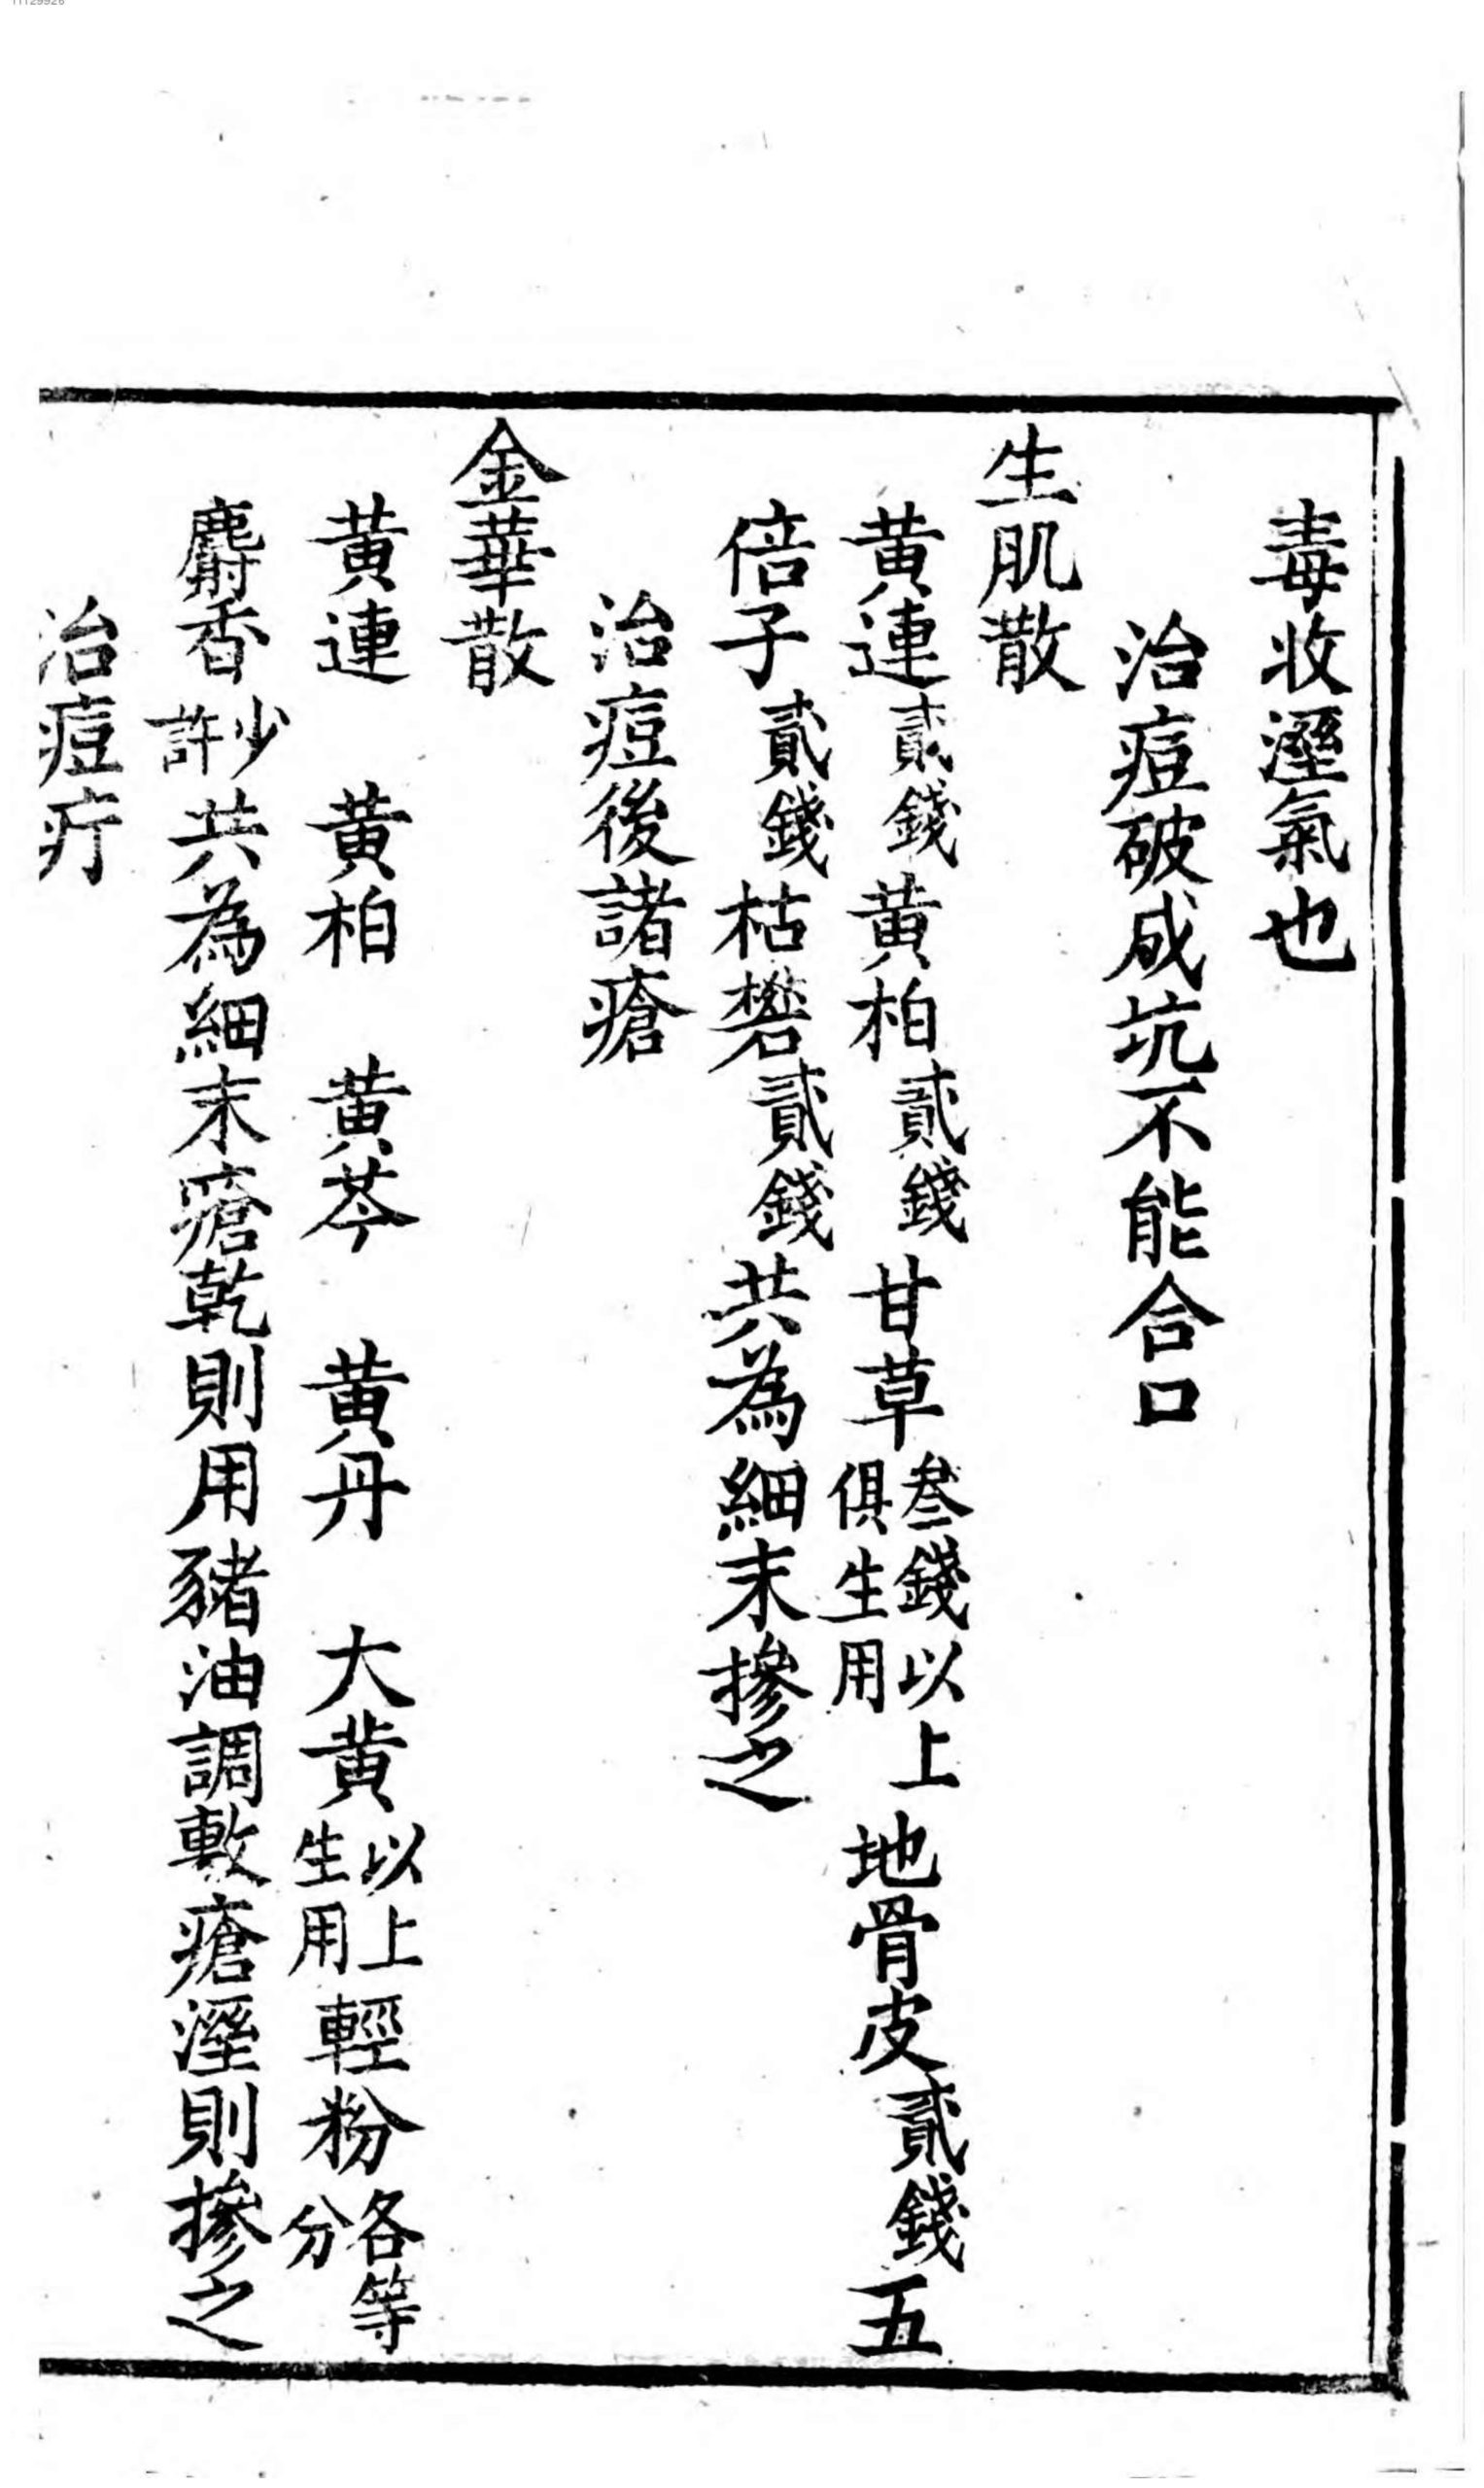 毒收溼氣也
治痘破成坑不能合口
生肌散
黃連貳錢黃柏貳錢甘草叁錢以上俱生用地骨皮貳錢五
倍子貳錢枯礬貳錢共為細末摻之
治痘後諸瘡
金華散
黃連 黃柏 黃芩 黃丹 大黃以上生用輕粉各等分
麝香少許共為細末瘡乾則用豬油調敷瘡溼則摻之
治痘疔